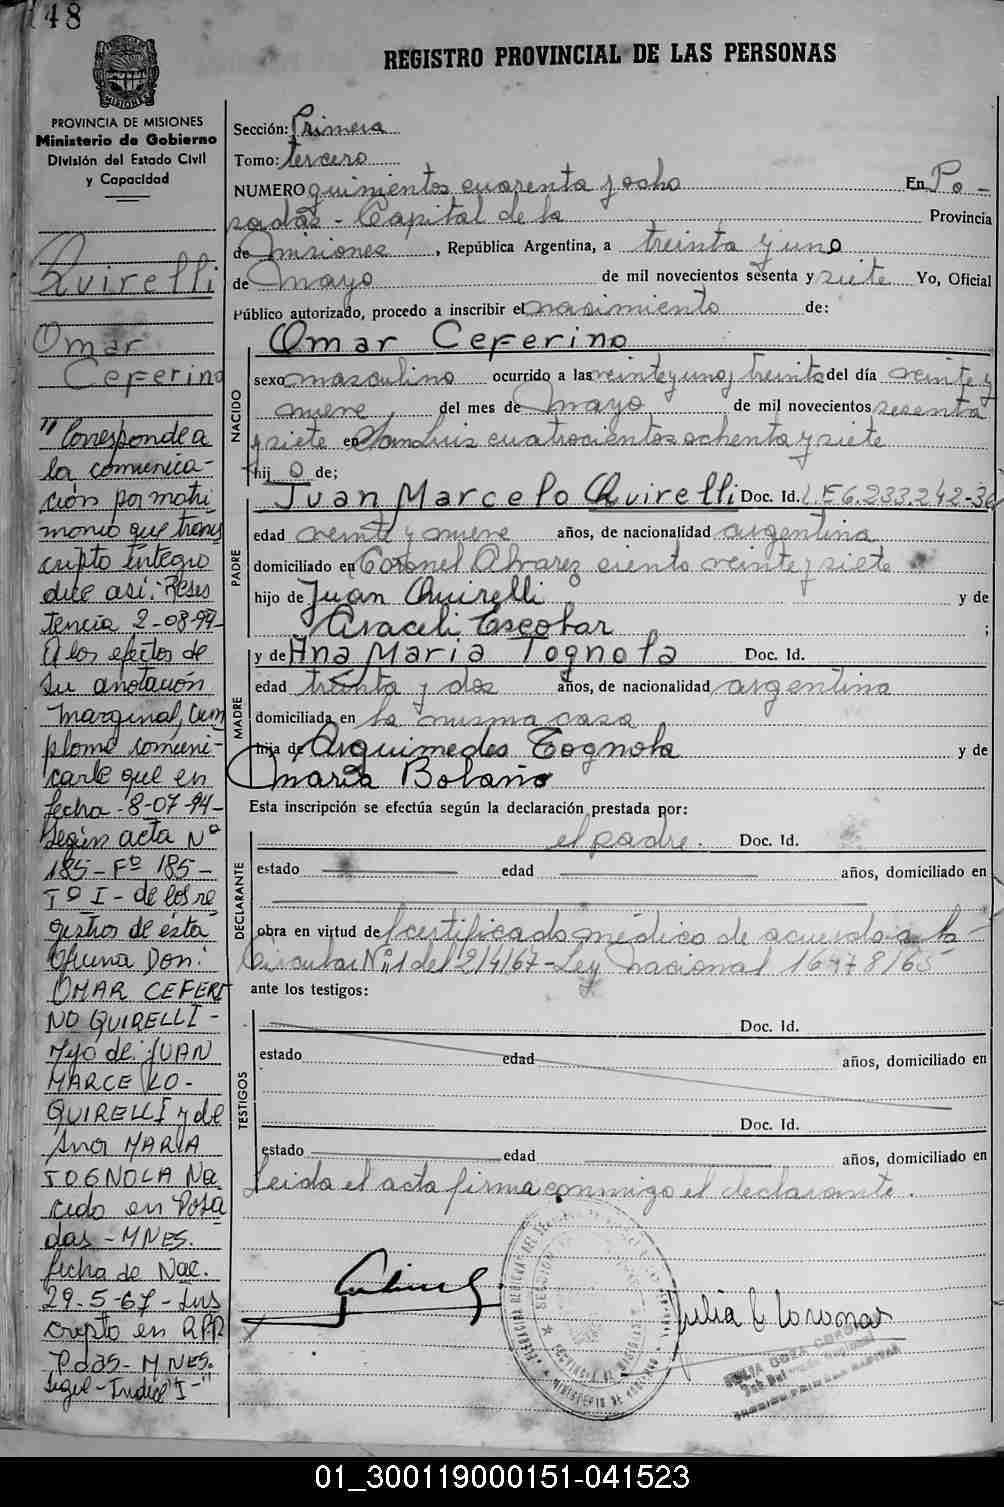 148
REGISTRO PROVINCIAL DE LAS PERSONAS
MISIONES
PROVINCIA DE MISIONES
Ministerio de Gobierno
División del Estado Civil
y Capacidad
Quirelli
Omar
Ceferino
"Corresponde a
la comunica-
ción por matri
monio que trans
cripto íntegro
dice así:
tencia 2-08-94-
A los efectos de
su anotación
Marginal, cum
plome comuni-
carle que en
fecha-8-07-94-
Según acta Nº
185-Fº 185-
Tº I- de los re
gistros de ésta
Oficina Don:
OMAR CEFERI
NO QUIRELLI-
Hijo de: JUAN
MARCELO-
QUIRELLI y de
Ana MARIA
TOGNOLA Na
cido en Posa
das-MNES.
fecha de Nac.
29-5-67-Ins
cripto en RPP
Pdas-MNES.
Indice "I-"
Sección: Primera
Tomo: tercero
NUMERO quinientos cuarenta y ocho En Po-
sadas - Capital de la Provincia
de Misiones, República Argentina, a treinta y uno
de Mayo de mil novecientos sesenta y siete Yo, Oficial
Público autorizado, procedo a inscribir el nacimiento de:
NACIDO
Omar Ceferino
sexo masculino ocurrido a las veinte y uno y treinta del día veinte y
nueve, del mes de Mayo de mil novecientos sesenta
y siete en San Luis cuatrocientos ochenta y siete
hijo de;
PADRE
Juan Marcelo Quirelli Doc. Id. L.E 6.233.242-
edad veinte y nueve años, de nacionalidad argentina
domiciliado en Coronel Alvarez ciento veinte y siete
hijo de Juan Quirelli y de
Araceli Escobar ;
MADRE
y de Ana Maria Tognola Doc. Id.
edad treinta y dos años, de nacionalidad argentina
domiciliada en la misma casa
hija de Arquimedes Tognola y de
Maria Bolaño
Esta inscripción se efectúa según la declaración prestada por:
DECLARANTE
el padre. Doc. Id.
estado edad años, domiciliado en
obra en virtud de certificado médico de acuerdo a la
Circular Nº 1 del 2/4/67-Ley Nacional 16478/65
ante los testigos:
TESTIGOS
Doc. Id.
estado edad años, domiciliado en
Doc. Id.
estado edad años, domiciliado en
Leida el acta firma conmigo el declarante.
01_300119000151-041523